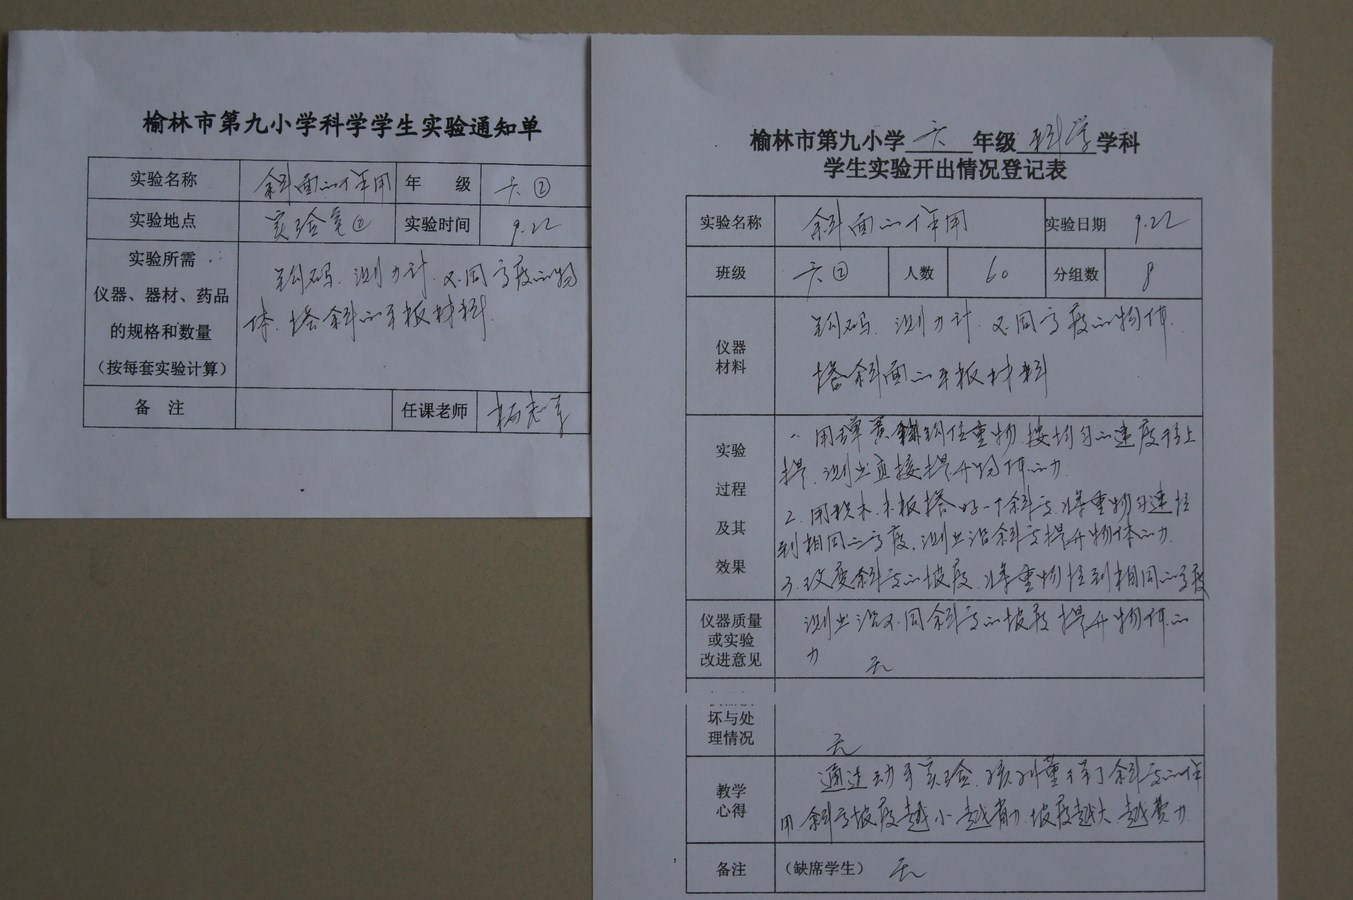 榆林市第九小学科学学生实验通知单
实验名称 斜面的作用 年 级 六②
实验地点 实验室② 实验时间 9.22
实验所需
仪器、器材、药品
的规格和数量
（按每套实验计算）
钩码、测力计、不同高度的物
体、搭斜面的平板材料
备 注 任课老师
榆林市第九小学 六 年级 科学 学科
学生实验开出情况登记表
实验名称 斜面的作用 实验日期 9.22
班级 六② 人数 60 分组数 8
仪器
材料
钩码、测力计、不同高度的物体、
搭斜面的平板材料
实验
过程
及其
效果
一、用弹簧钩住重物按均匀的速度往上
提、测出直接提升物体的力
2.用积木、木板搭好一个斜面、将重物匀速拉
到相同的高度、测出沿斜面提升物体的力
3.改变斜面的坡度、将重物拉到相同的高度
仪器质量
或实验
改进意见
测出沿不同斜面的坡度提升物体的
力 无
坏与处
理情况
无
教学
心得
通过动手实验、孩子们懂得了斜面的作
用 斜面坡度越小越省力 坡度越大越费力
备注 （缺席学生） 无